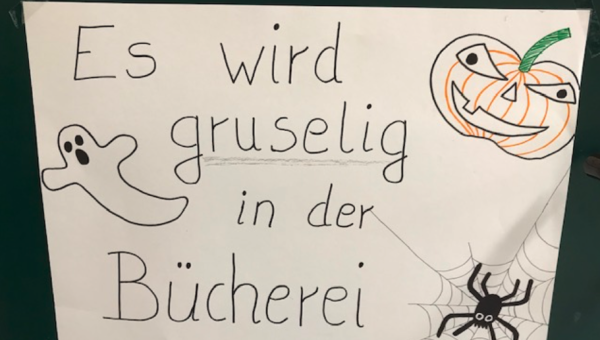 Es wird
gruselig
in der
Bücherei